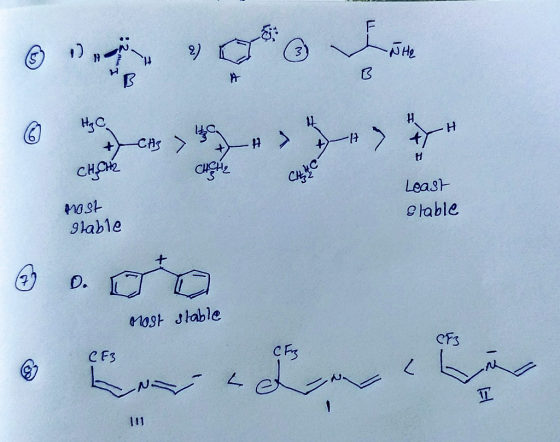 ⑤ 1) H N̈ H H 2) :S̈: ③ F N̄H₂
B A B
⑥ H₃C + CH₃ CH₃CH₂ > H₃C + H CH₃CH₂ > H + H CH₃CH₂ > H + H H
Most stable
Least stable
⑦ D. +
Most stable
⑧ CF₃ N - < CF₃ ⊖ N < CF₃ N̄
III I II